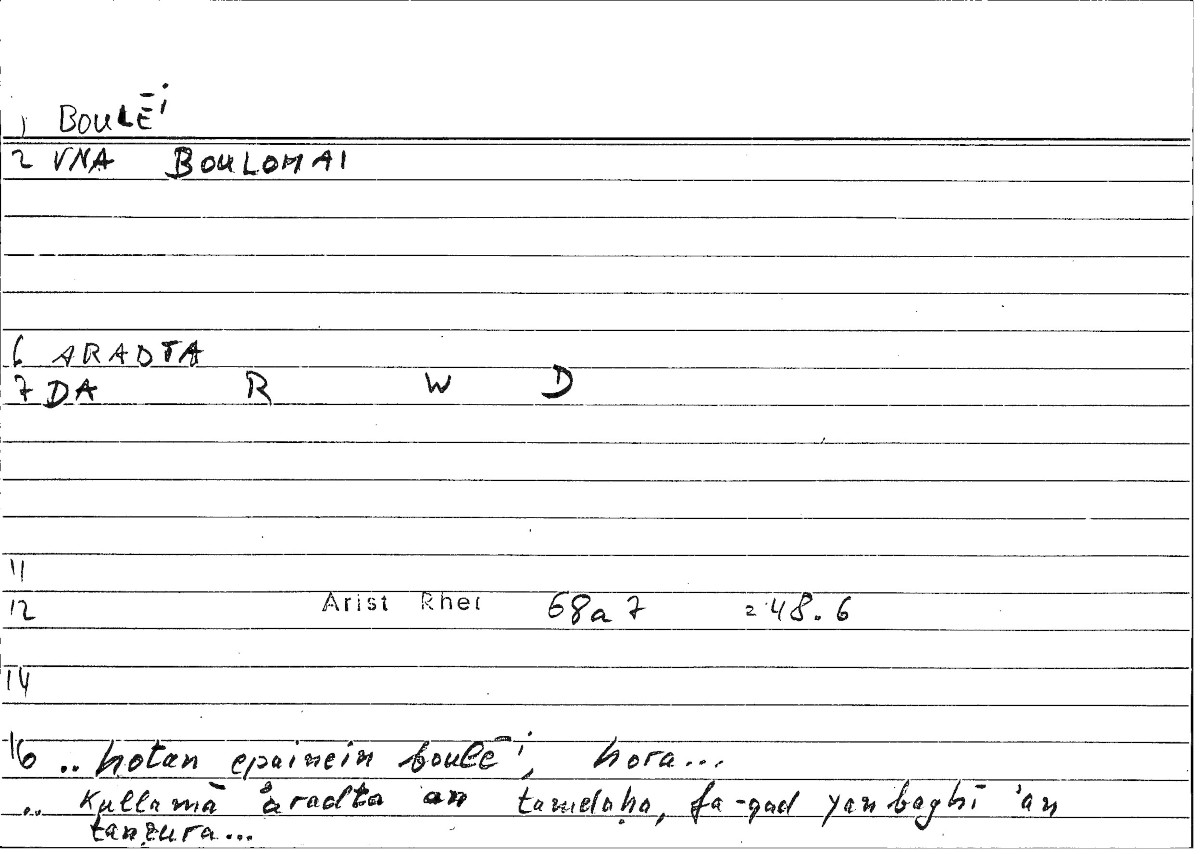 1 BOULĒi
2 VNA BOULOMAI
6 ARADTA
7 DA R W D
11
12 Arist Rhet 68a7 =48.6
14
16 .. hotan epainein boulēi, hora...
.. kullamā aradta an tamdaḥa, fa-qad yanbaghī 'an
tanẓura...